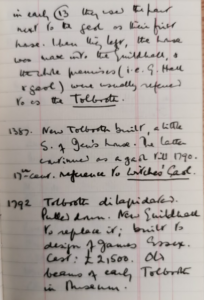 in early 13 they used the part
next to the gaol as their first
house. When this left, the house
was made into the Guildhall, &
the whole premises (i.e. G. Hall
& gaol) were usually referred
to as the Tolbooth.
1387. New Tolbooth built, a little
S. of Jew's house. The latter
continued as a gaol till 1790.
17th cent. reference to Witches Gaol.
1792 Tolbooth dilapidated.
Pulled down. New Guildhall
to replace it; built to
design of James Essex.
Cost: £2,500. Old
beams of early Tolbooth
in Museum.